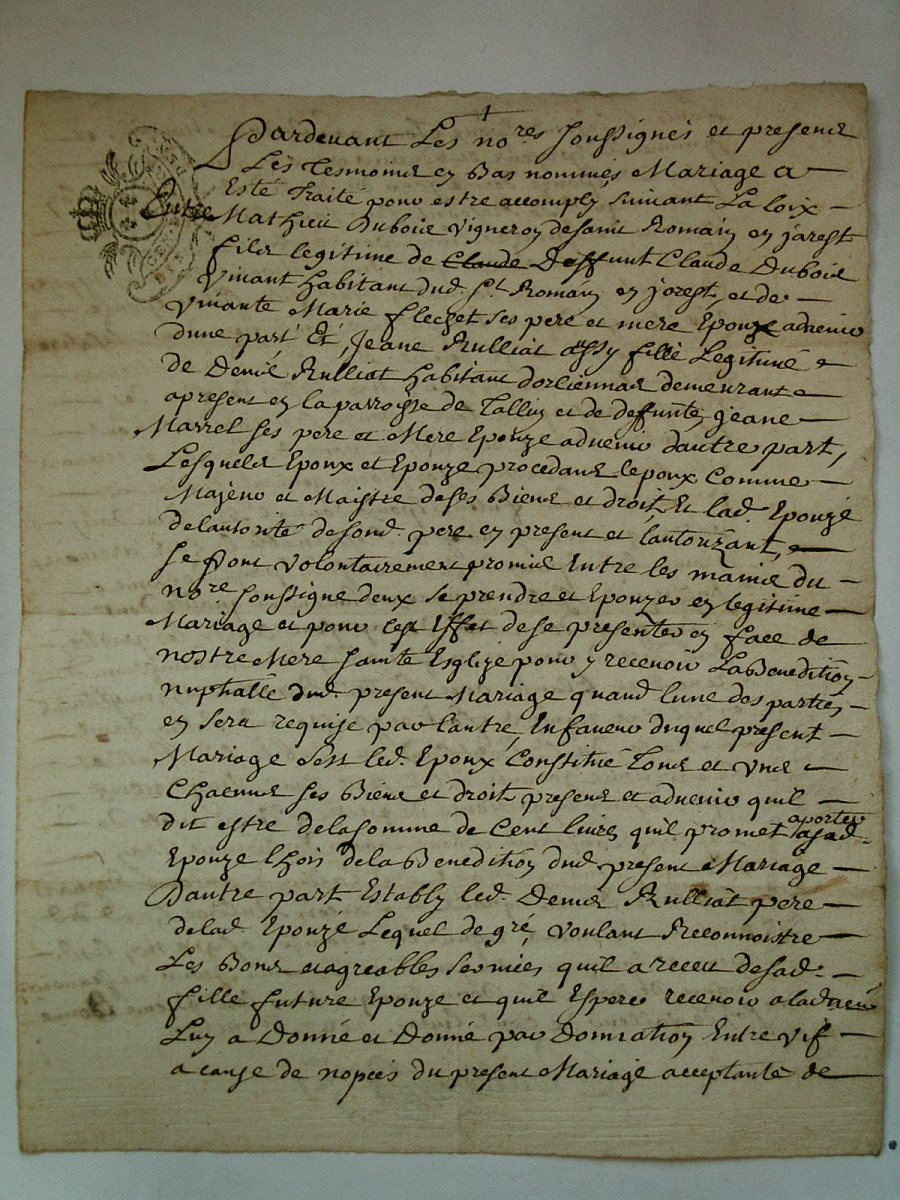 Pardevant Les no.res soussignés et presens
Les Tesmoins en Bas nommés Mariage a
Esté Traité pour estre accomply suivant La loix
Entre Mathieu Dubois vigneron de saint Romain en jarest
fils legitime de Claude Deffunt Claude Dubois
vivant habitant dud. St. Romain en jarest, et de
vivante Marie flechet ses pere et mere Epoux advenir
dune part Et, Jeane Rulliat assy fille Legitime
de Denis Rulliat habitant dorliennas demeurant
apresent en la parroisse de Talluy et de deffunte jeane
Marrel ses pere et Mere Epouze advenir dautre part,
Lesquels Epoux et Epouze procedans lepoux Comme
Majeur et Maistre de ses Biens et droit, Et lad. Epouze
delautorité desond. pere en present et lautorizant,
se sont volontairement promis Entre les mains du
no.re soussigné deux se prendre et Epouzer en legitime
Mariage et pour cest Effet de se presenter en face de
nostre Mere sainte Esglize pour y recevoir La Benedition
nuphalle dud. present Mariage quand lune des parties
en sera requise par lautre, En faveur duquel present
Mariage sest led. Epoux Constitué Tous et uns
Chacuns ses Biens et droit presens et advenir quil
dit estre de la somme de Cent livres quil promet aporter asad.
Epouze lhors de la Benedition dud. present Mariage
Dautre part Estably led. Denis Rulliat pere
delad. Epouze Lequel de gré, voulant Reconnoistre
Les Bons et agreables services quil a receu desad.
fille future Epouze et quil Espere recevoir aladvenir
Luy a Donné et Donne par Donnation Entre vif
a cause de nopces du present Mariage acceptante de